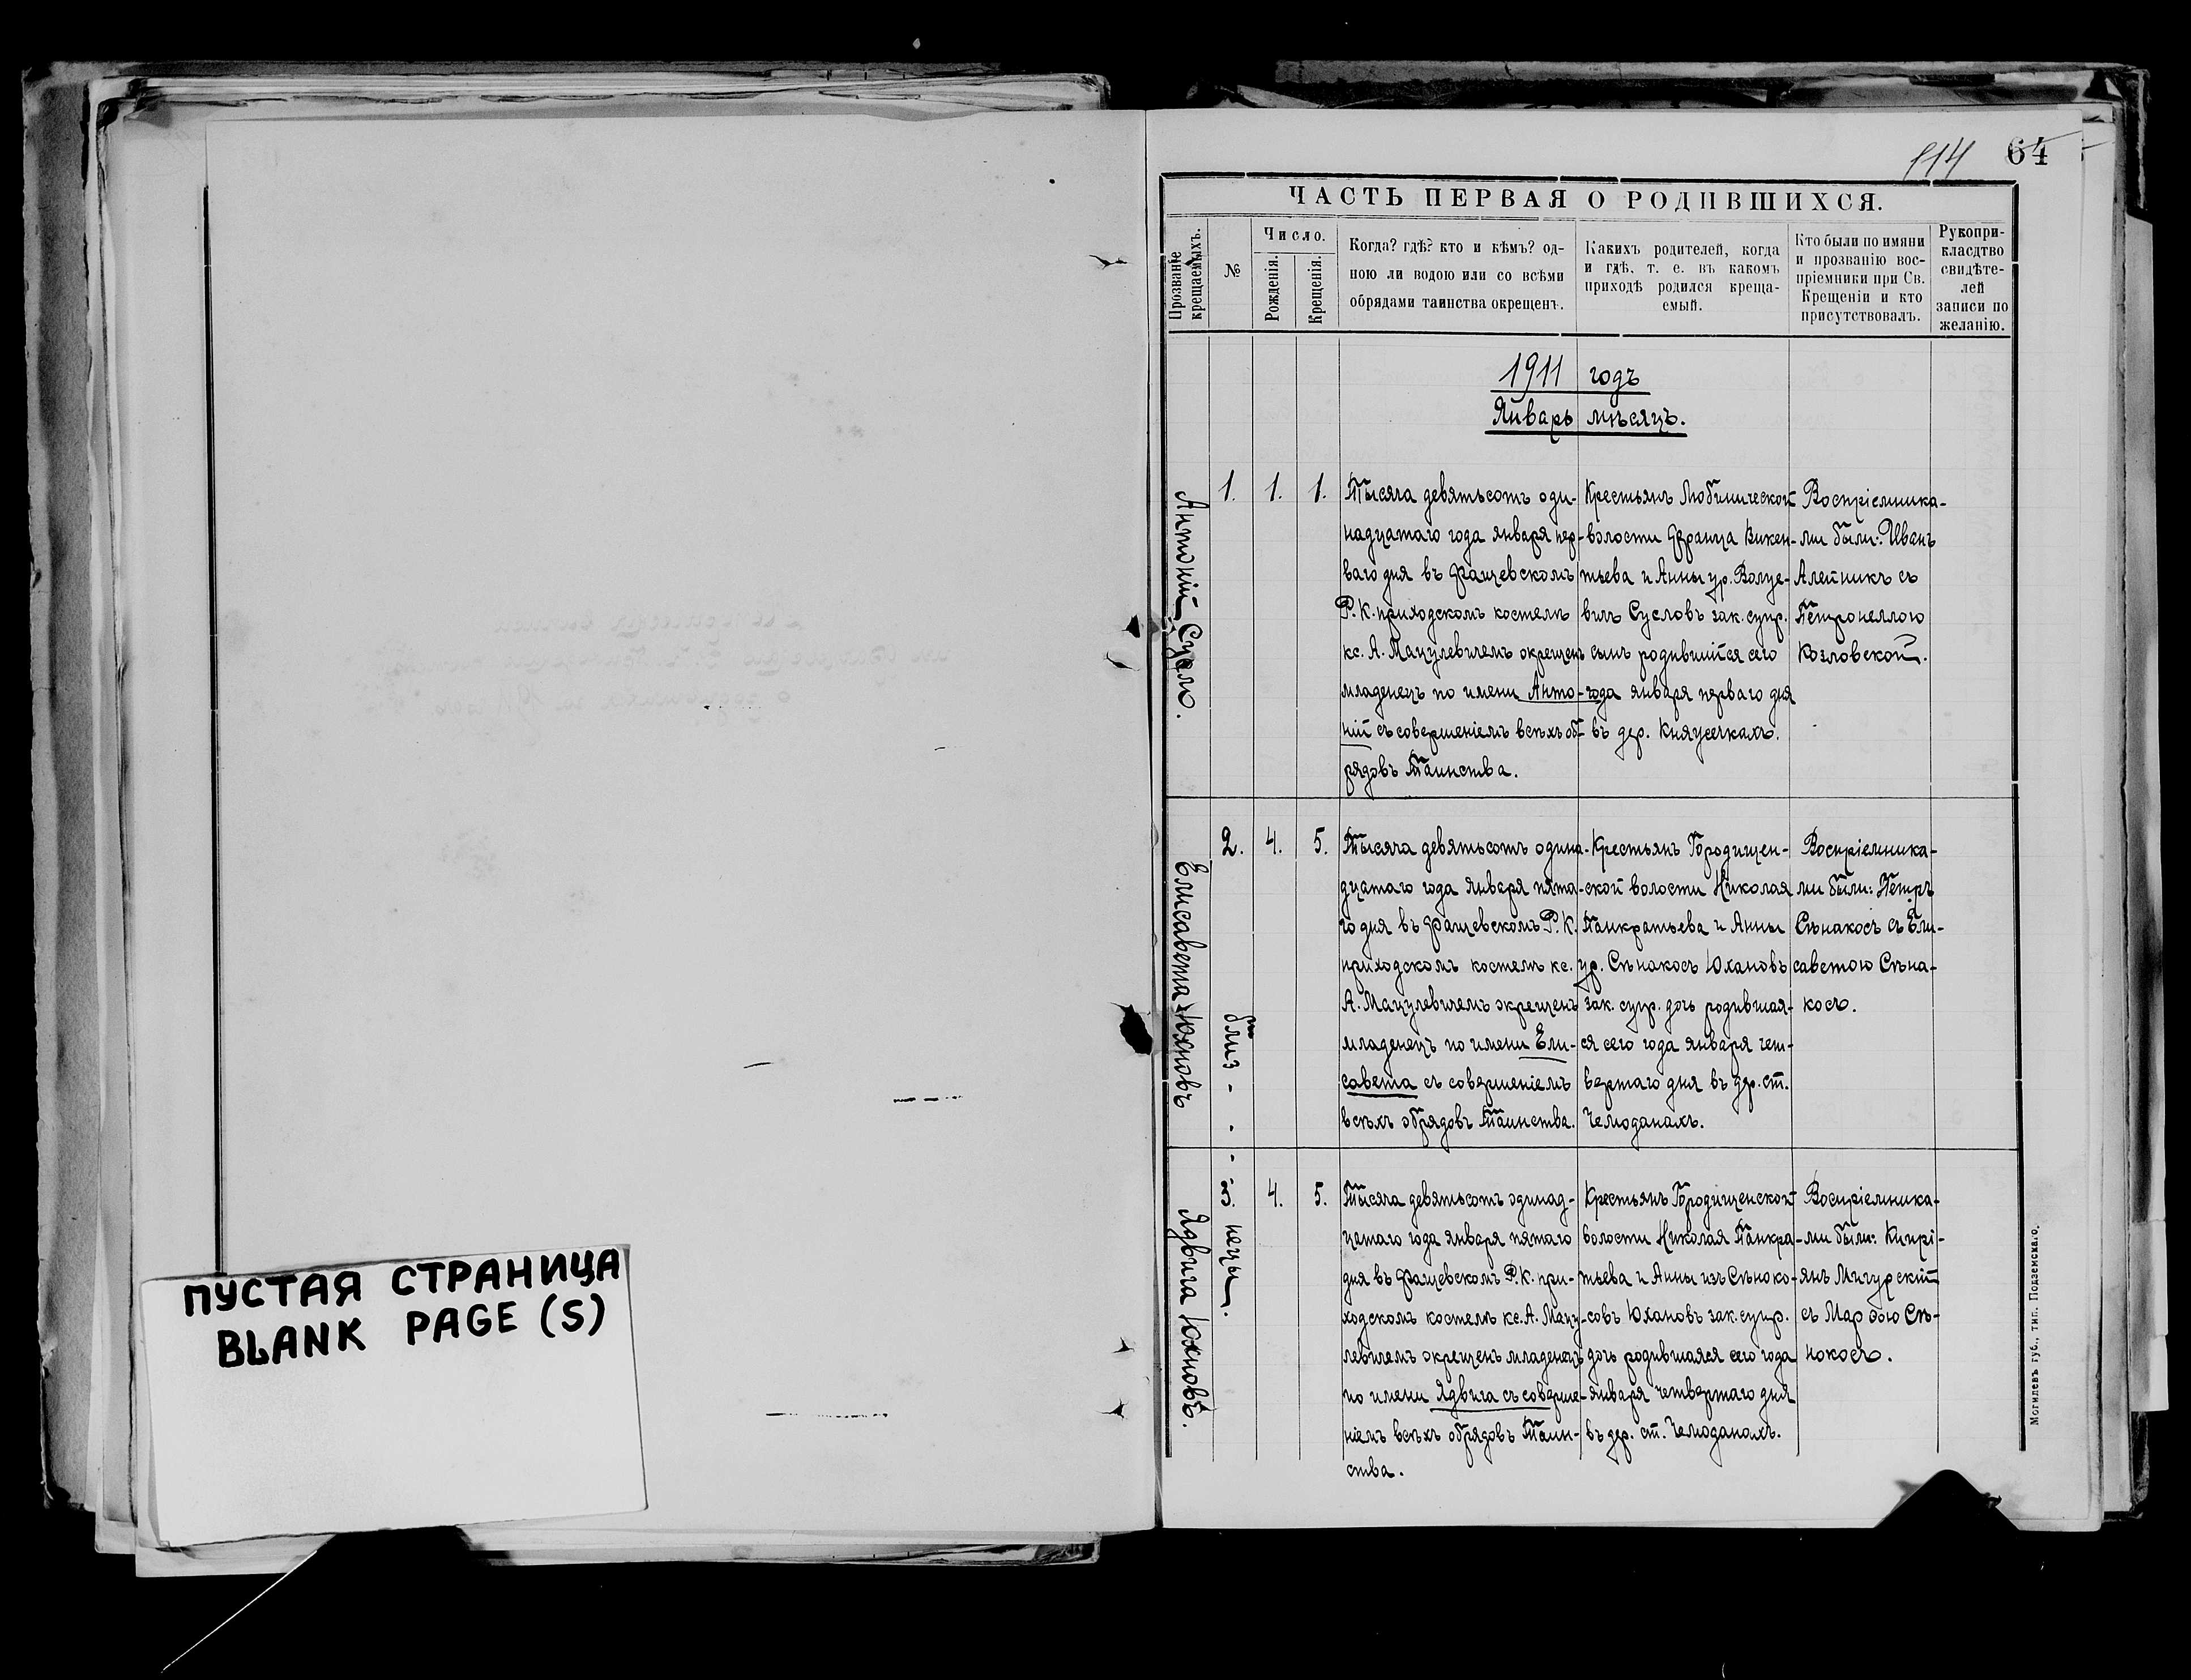 ПУСТАЯ СТРАНИЦА
BLANK PAGE (S)
114 64
ЧАСТЬ ПЕРВАЯ О РОДИВШИХСЯ.
Прозваніе крещаемыхъ.
№
Число.
Рожденія.
Крещенія.
Когда? гдѣ? кто и кѣмъ? од-
ною ли водою или со всѣми
обрядами таинства окрещенъ.
Какихъ родителей, когда
и гдѣ, т. е. въ какомъ
приходѣ родился креща-
емый.
Кто были по имяни
и прозванію вос-
пріемники при Св.
Крещеніи и кто
присутствовалъ.
Рукопри-
класдтво
свидѣте-
лей
записи по
желанію.
1911 годъ
Январь мѣсяцъ.
Антоній Сусло.
1. 1. 1.
Тысяча девятьсотъ оди-
надцатаго года января пер-
ваго дня въ Фащевскомъ
Р. К. приходскомъ костелѣ
кс. А. Мацулевичемъ окрещенъ
младенецъ по имени Анто-
ній съ совершеніемъ всѣхъ об-
рядовъ Таинства.
Крестьянъ Любиничской
волости Франца Викен-
тьева и Анны ур. Волце-
вичъ Сусловъ зак. супр.
сынъ родившійся сего
года января перваго дня
въ дер. Княжичкахъ.
Воспріемника-
ми были: Иванъ
Алейникъ съ
Петронеллою
Козловской.
Елисавета Юхновъ
2. 4. 5.
Тысяча девятьсотъ одина-
дцатаго года января пята-
го дня въ Фащевскомъ Р. К.
приходскомъ костелѣ кс.
А. Мацулевичемъ окрещенъ
младенецъ по имени Ели-
савета съ совершеніемъ
всѣхъ обрядовъ Таинства.
Крестьянъ Городищен-
ской волости Николая
Панкратьева и Анны
ур. Сѣнакосъ Юхановъ
зак. супр. дочь родившая-
ся сего года января чет-
вертаго дня въ дер. ст.
Чемоданахъ.
Воспріемника-
ми были: Петръ
Сѣнакосъ съ Ели-
саветою Сѣна-
косъ.
близ - - - нецы.
Ядвига Юхновъ.
3. 4. 5.
Тысяча девятьсотъ одинад-
цатаго года января пятаго
дня въ Фащевскомъ Р. К. при-
ходскомъ костелѣ кс. А. Мацу-
левичемъ окрещенъ младенецъ
по имени Ядвига съ соверше-
ніемъ всѣхъ обрядовъ Таин-
ства.
Крестьянъ Городищенской
волости Николая Панкра-
тьева и Анны изъ Сѣноко-
совъ Юхановъ зак. супр.
дочь родившаяся сего года
января четвертаго дня
въ дер. ст. Чемоданахъ.
Воспріемника-
ми были: Кипрі-
янъ Мигурскій
съ Марѳою Сѣ-
нокосъ.
Могилевъ губ., тип. Подземскаго.